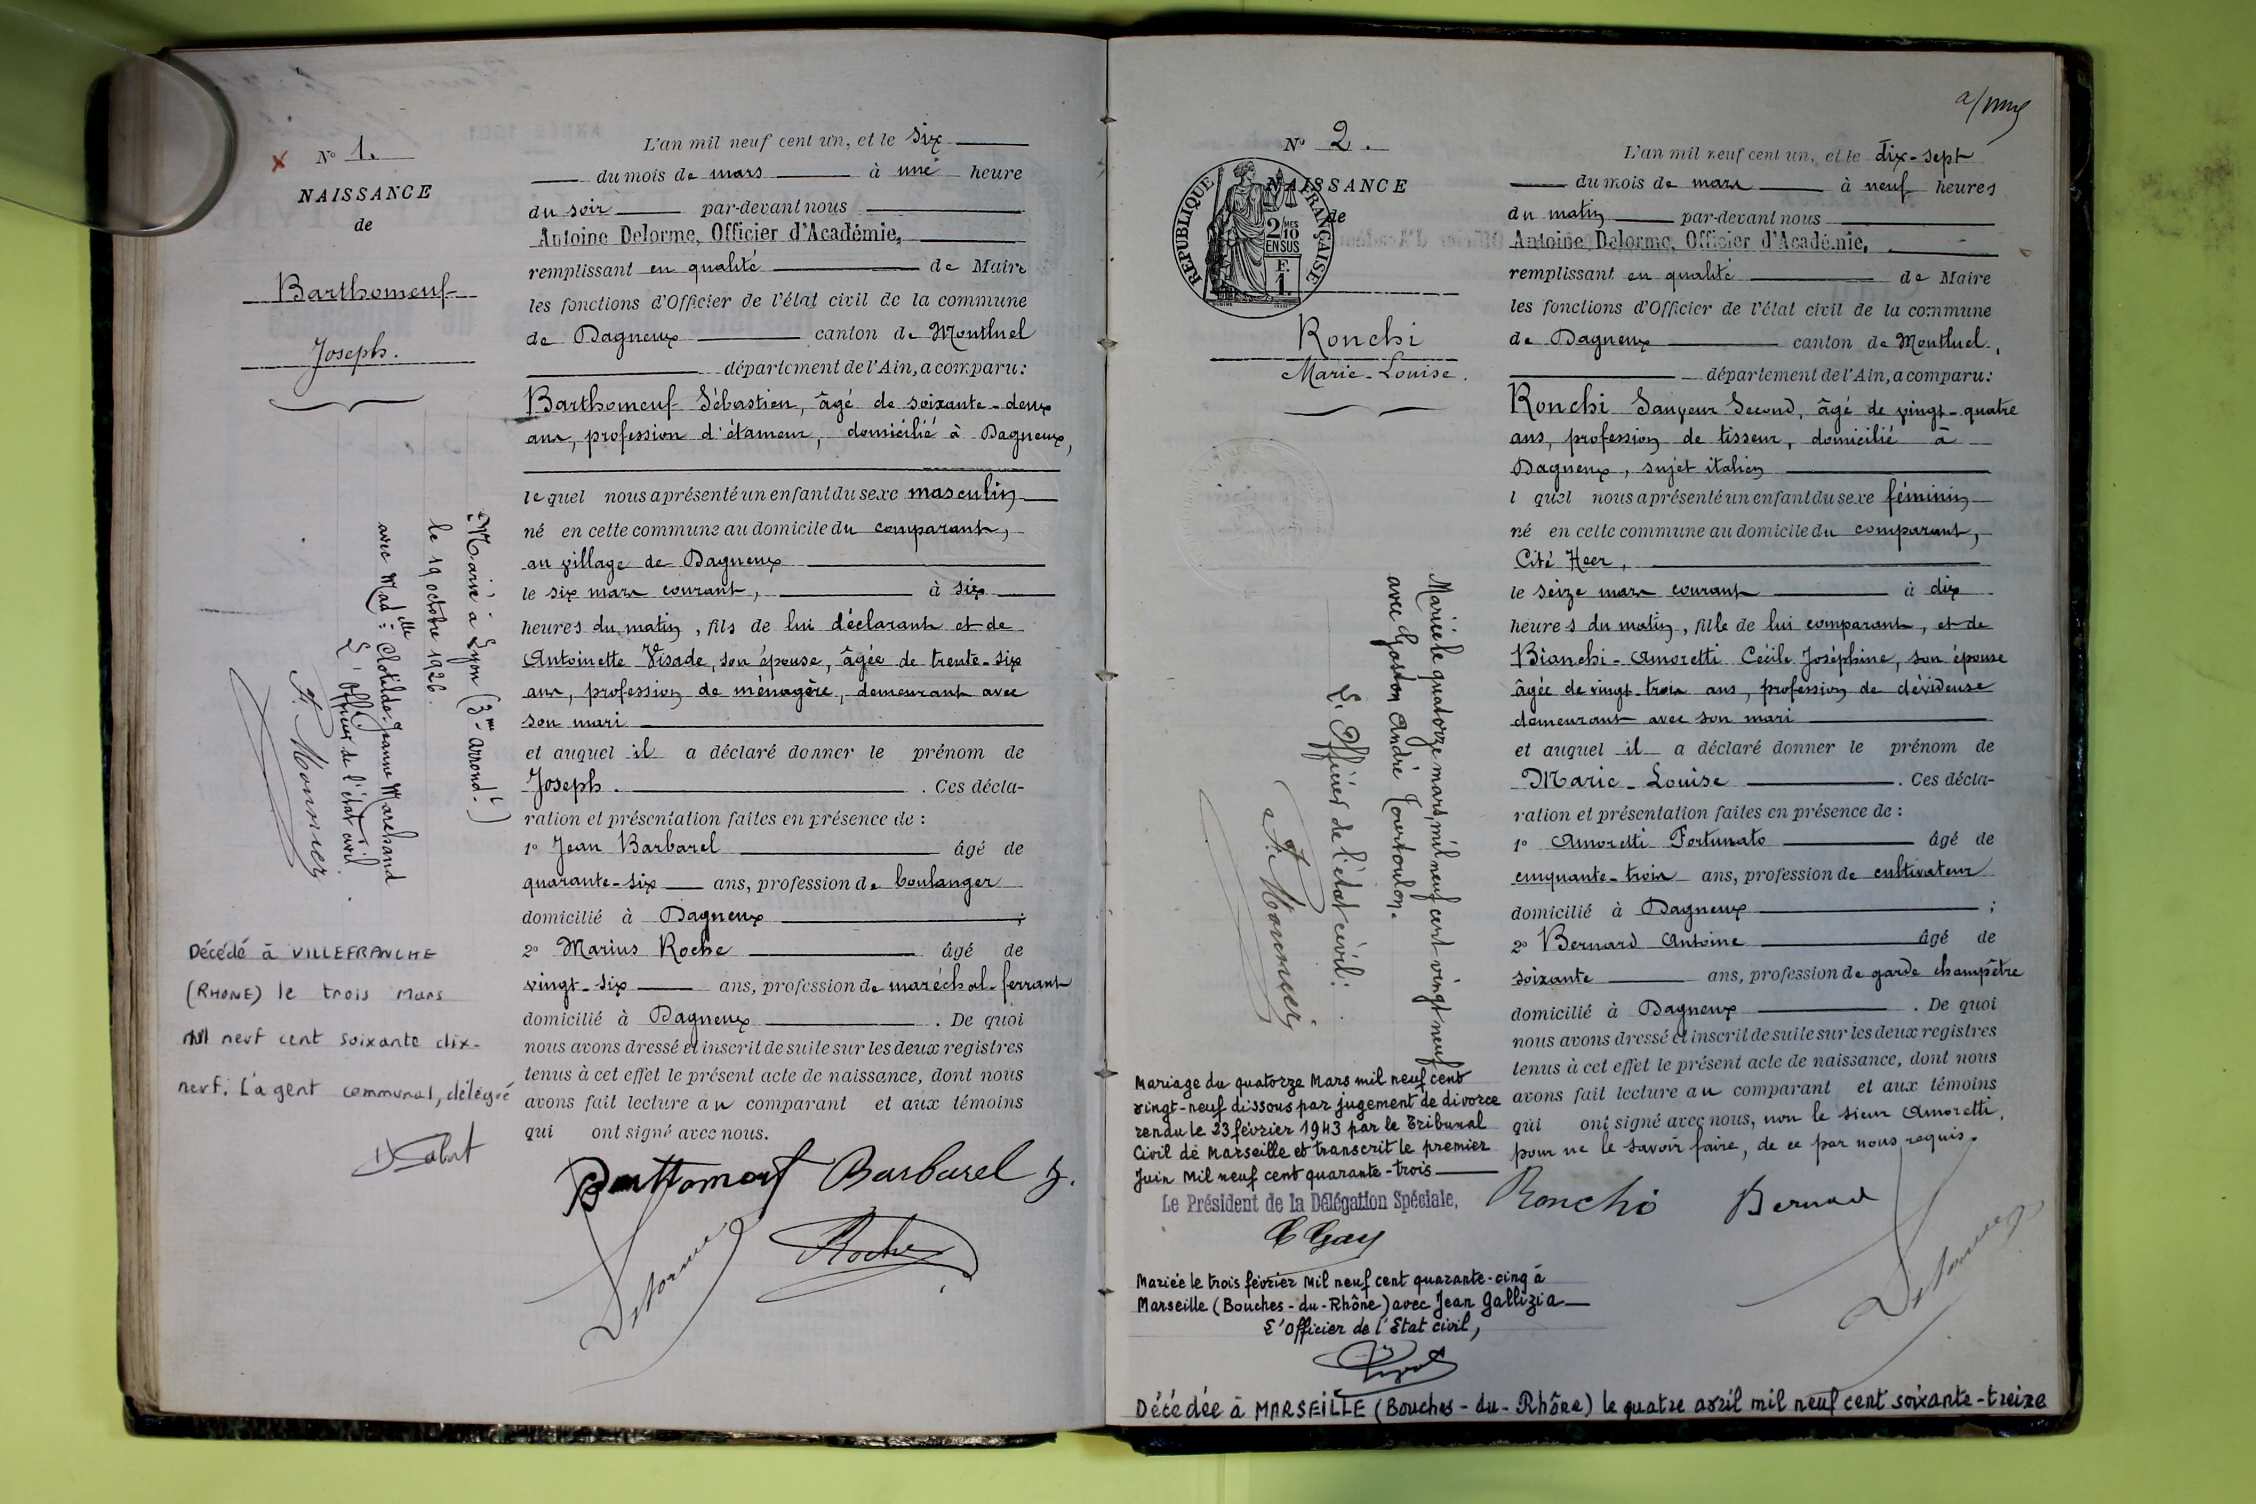 N° 1.
NAISSANCE
de
Barthomeuf
Joseph.
Marié à Lyon (3me arrondt)
le 19 octobre 1926.
avec Madelle Clotilde-Jeanne Marchand
L'Officier de l'état civil.
F. Monnier
Décédé à VILLEFRANCHE
(RHONE) le trois Mars
mil neuf cent soixante dix-
neuf. L'agent communal, délégué
L'an mil neuf cent un, et le six
du mois de mars à une heure
du soir par-devant nous
Antoine Delorme, Officier d'Académie,
remplissant en qualité de Maire
les fonctions d'Officier de l'état civil de la commune
de Dagneux canton de Montluel
département de l'Ain, a comparu:
Barthomeuf Sébastien, âgé de soixante-deux
ans, profession d'étameur, domicilié à Dagneux,
lequel nous a présenté un enfant du sexe masculin
né en cette commune au domicile du comparant,
au village de Dagneux
le six mars courant, à six
heures du matin, fils de lui déclarant et de
Antoinette Visade, son épouse, âgée de trente-six
ans, profession de ménagère, demeurant avec
son mari
et auquel il a déclaré donner le prénom de
Joseph. . Ces décla-
ration et présentation faites en présence de :
1° Jean Barbarel âgé de
quarante-six ans, profession de boulanger
domicilié à Dagneux ;
2° Marius Roche âgé de
vingt-six ans, profession de maréchal-ferrant
domicilié à Dagneux . De quoi
nous avons dressé et inscrit de suite sur les deux registres
tenus à cet effet le présent acte de naissance, dont nous
avons fait lecture au comparant et aux témoins
qui ont signé avec nous.
Barttomeuf Barbarel J.
Delorme Roche
N° 2.
NAISSANCE
de
RÉPUBLIQUE FRANÇAISE
2/10 MES
EN SUS
F.
1.
Ronchi
Marie-Louise.
Mariée le quatorze mars mil neuf cent vingt neuf
avec Gaston André Tourtoulon.
L'Officier de l'état civil.
F. Monnier
Mariage du quatorze Mars mil neuf cent
vingt-neuf dissous par jugement de divorce
rendu le 23 février 1943 par le Tribunal
Civil de Marseille et transcrit le premier
Juin mil neuf cent quarante-trois
Le Président de la Délégation Spéciale,
C Gay
Mariée le trois février mil neuf cent quarante-cinq à
Marseille (Bouches-du-Rhône) avec Jean Gallizia
L'Officier de l'Etat civil,
Décédée à MARSEILLE (Bouches-du-Rhône) le quatre avril mil neuf cent soixante-treize
L'an mil neuf cent un, et le dix-sept
du mois de mars à neuf heures
du matin par-devant nous
Antoine Delorme, Officier d'Académie,
remplissant en qualité de Maire
les fonctions d'Officier de l'état civil de la commune
de Dagneux canton de Montluel,
département de l'Ain, a comparu:
Ronchi Sanyeur Second, âgé de vingt-quatre
ans, profession de tisseur, domicilié à
Dagneux, sujet italien
l quel nous a présenté un enfant du sexe féminin
né en cette commune au domicile du comparant,
Cité Heer,
le seize mars courant à dix
heures du matin, fille de lui comparant, et de
Bianchi-Amoretti Cécile Joséphine, son épouse
âgée de vingt-trois ans, profession de dévideuse
demeurant avec son mari
et auquel il a déclaré donner le prénom de
Marie-Louise . Ces décla-
ration et présentation faites en présence de :
1° Amoretti Fortunato âgé de
cinquante-trois ans, profession de cultivateur
domicilié à Dagneux ;
2° Bernard Antoine âgé de
soixante ans, profession de garde champêtre
domicilié à Dagneux . De quoi
nous avons dressé et inscrit de suite sur les deux registres
tenus à cet effet le présent acte de naissance, dont nous
avons fait lecture au comparant et aux témoins
qui ont signé avec nous, non le sieur Amoretti,
pour ne le savoir faire, de ce par nous requis.
Ronchi Bernard
Delorme